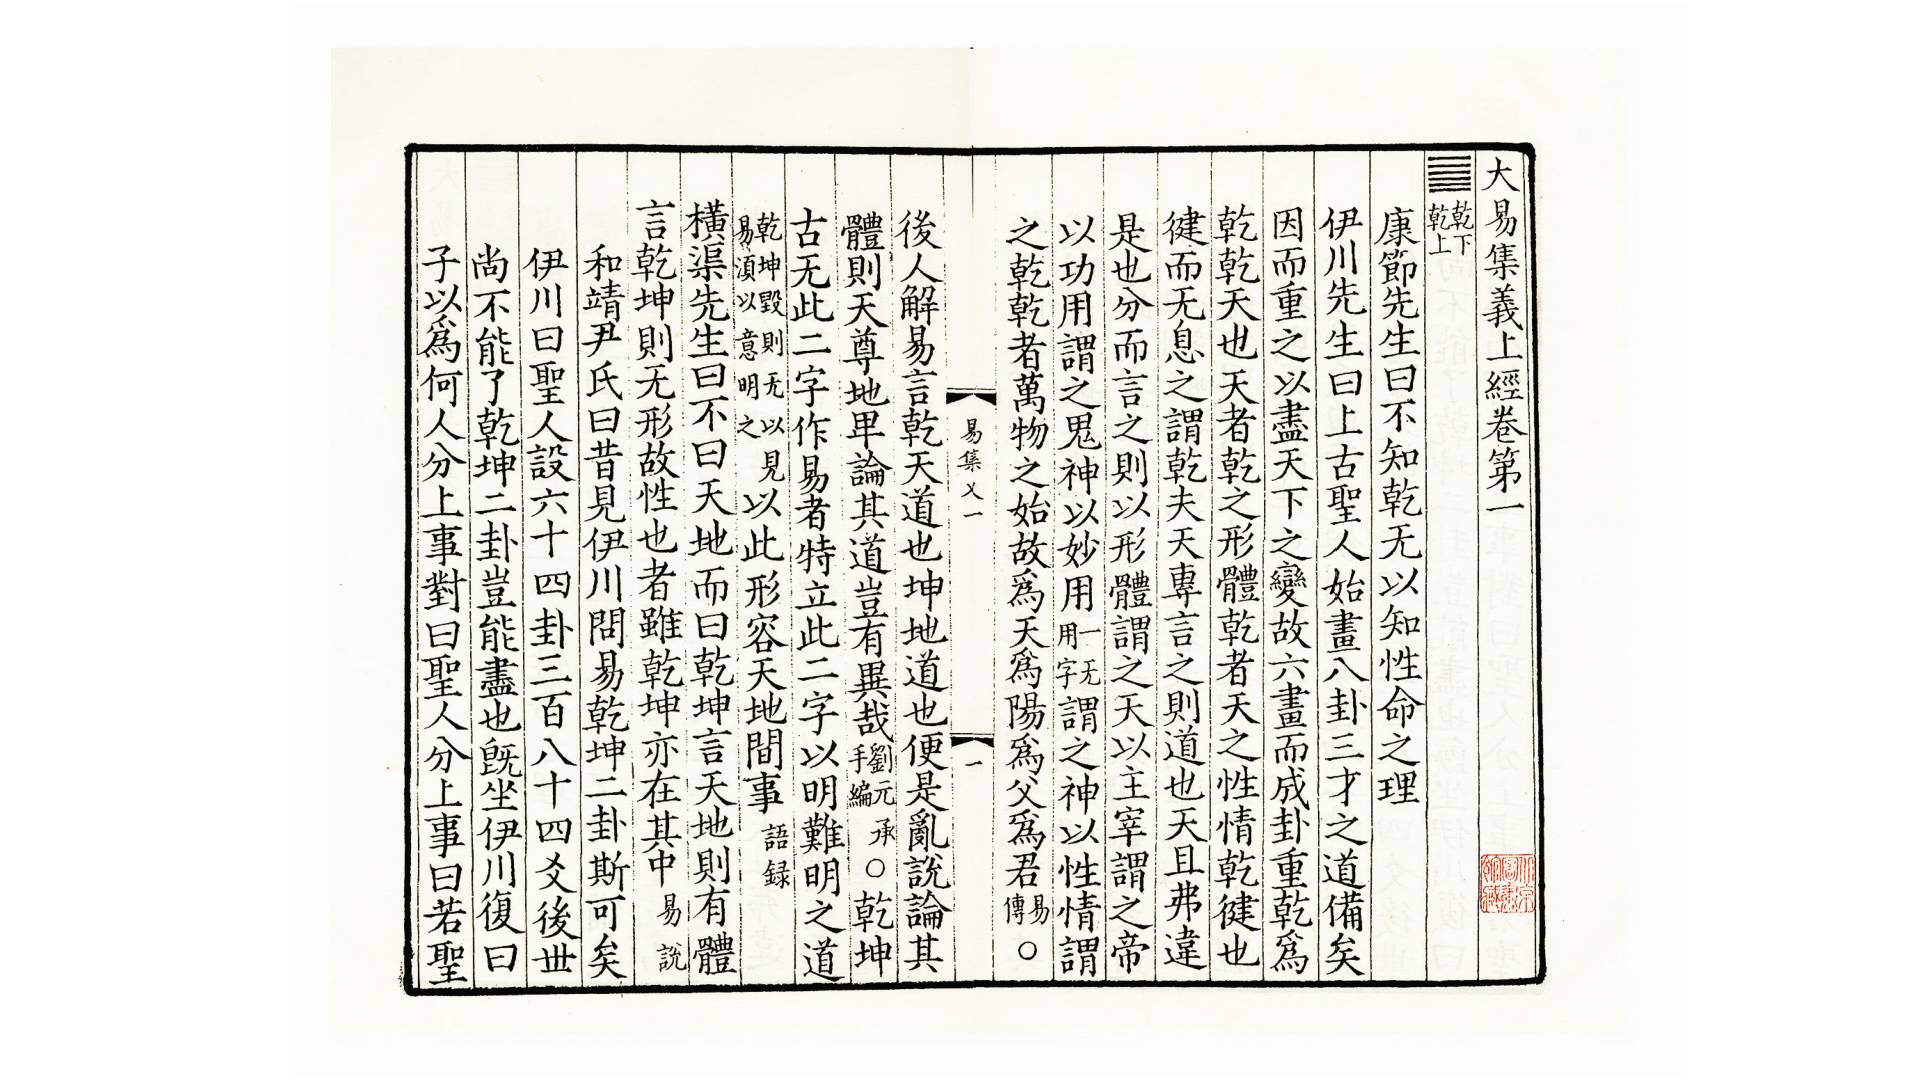 大易集義上經卷第一
乾下
乾上
康節先生曰不知乾无以知性命之理
伊川先生曰上古聖人始畫八卦三才之道備矣
因而重之以盡天下之變故六畫而成卦重乾爲
乾乾天也天者乾之形體乾者天之性情乾健也
健而无息之謂乾夫天專言之則道也天且弗違
是也分而言之則以形體謂之天以主宰謂之帝
以功用謂之鬼神以妙用一无用字謂之神以性情謂
之乾乾者萬物之始故爲天爲陽爲父爲君易傳○
易集义一
一
後人解易言乾天道也坤地道也便是亂說論其
體則天尊地卑論其道豈有異哉劉元承手編○乾坤
古无此二字作易者特立此二字以明難明之道
乾坤毀則无以見易須以意明之以此形容天地間事語録
橫渠先生曰不曰天地而曰乾坤言天地則有體
言乾坤則无形故性也者雖乾坤亦在其中易說
和靖尹氏曰昔見伊川問易乾坤二卦斯可矣
伊川曰聖人設六十四卦三百八十四爻後世
尚不能了乾坤二卦豈能盡也旣坐伊川復曰
子以爲何人分上事對曰聖人分上事曰若聖